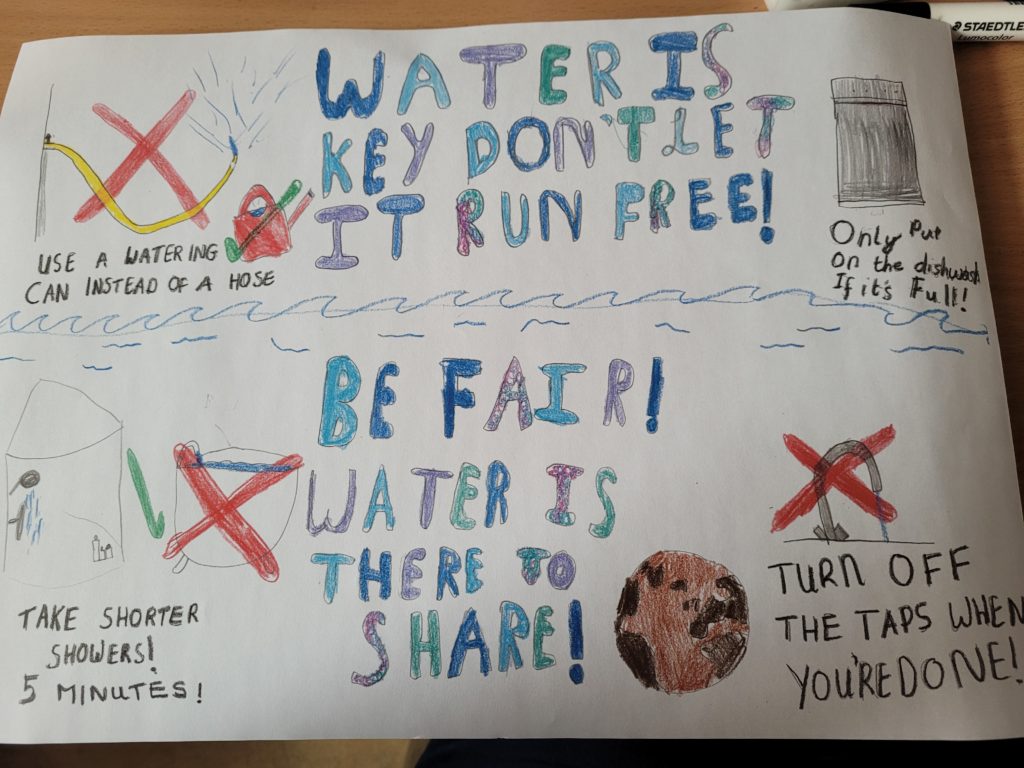 STAEDTLER
Lumocolor
WATER IS
KEY DON'T LET
IT RUN FREE!
USE A WATERING
CAN INSTEAD OF A HOSE
Only Put
On the dishwash
If it's Full!
BE FAIR!
WATER IS
THERE TO
SHARE!
TAKE SHORTER
SHOWERS!
5 MINUTES!
TURN OFF
THE TAPS WHEN
YOU'RE DONE!